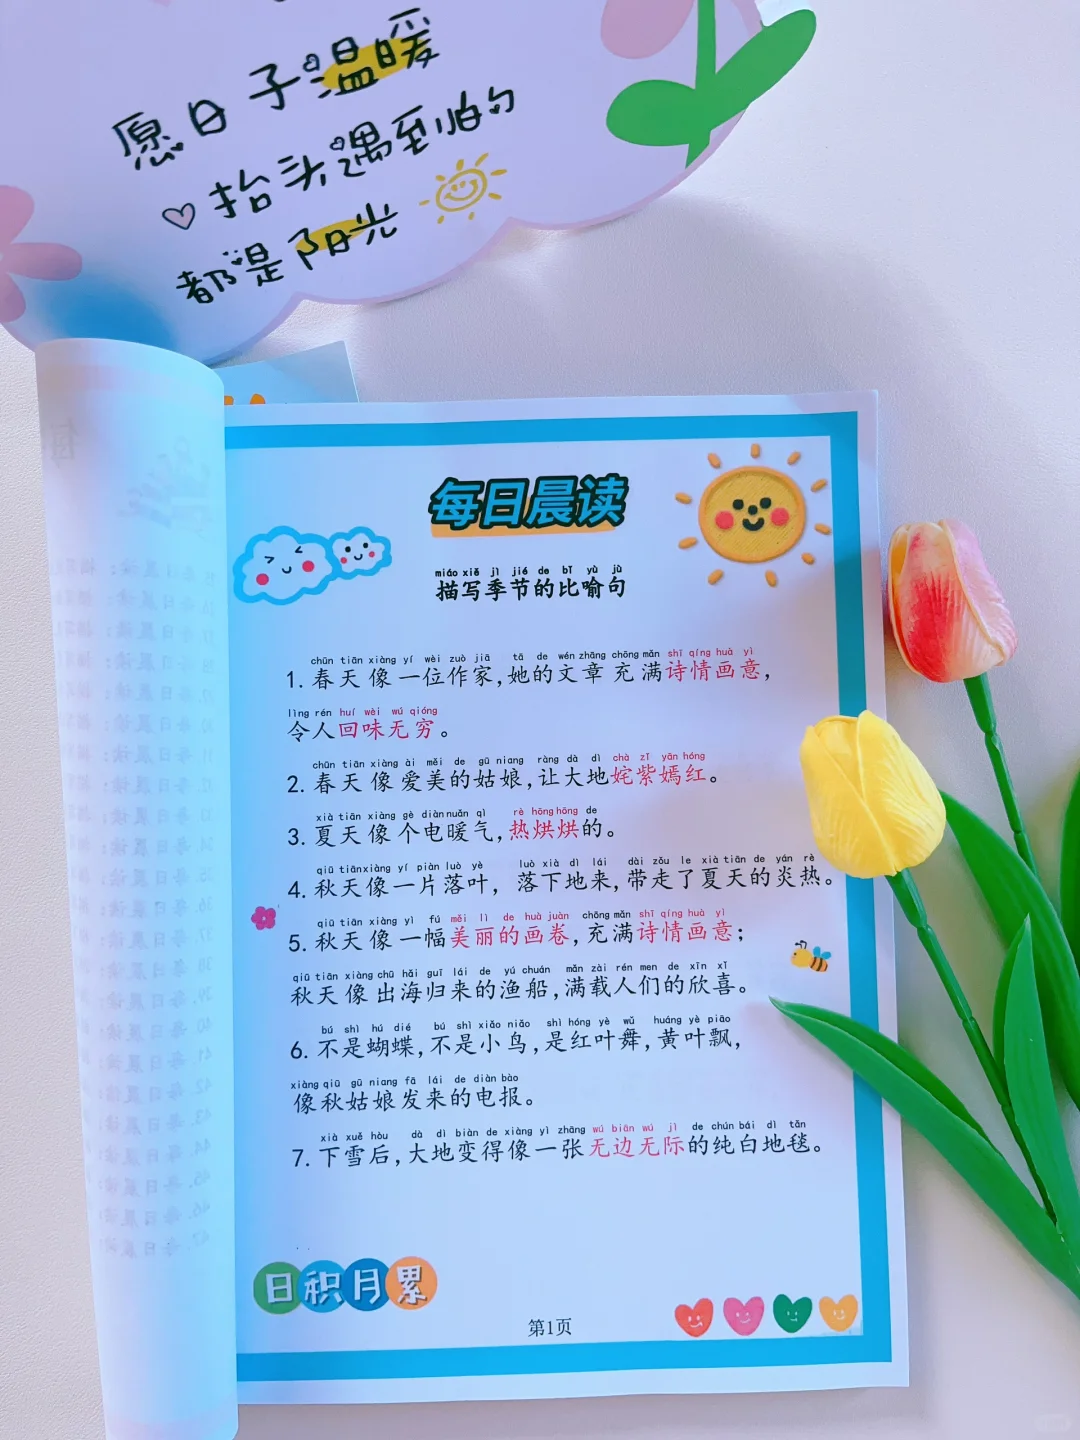 愿日子温暖
抬头遇到的
都是阳光
每日晨读
miáo xiě jì jié de bǐ yù jù
描写季节的比喻句
chūn tiān xiàng yí wèi zuò jiā tā de wén zhāng chōng mǎn shī qíng huà yì
1. 春天像一位作家,她的文章充满诗情画意,
lìng rén huí wèi wú qióng
令人回味无穷。
chūn tiān xiàng ài měi de gū niang ràng dà dì chà zǐ yān hóng
2. 春天像爱美的姑娘,让大地姹紫嫣红。
xià tiān xiàng gè diàn nuǎn qì rè hōng hōng de
3. 夏天像个电暖气,热烘烘的。
qiū tiān xiàng yí piàn luò yè luò xià dì lái dài zǒu le xià tiān de yán rè
4. 秋天像一片落叶, 落下地来,带走了夏天的炎热。
qiū tiān xiàng yì fú měi lì de huà juàn chōng mǎn shī qíng huà yì
5. 秋天像一幅美丽的画卷,充满诗情画意;
qiū tiān xiàng chū hǎi guī lái de yú chuán mǎn zài rén men de xīn xǐ
秋天像出海归来的渔船,满载人们的欣喜。
bú shì hú dié bú shì xiǎo niǎo shì hóng yè wǔ huáng yè piāo
6. 不是蝴蝶,不是小鸟,是红叶舞,黄叶飘,
xiàng qiū gū niang fā lái de diàn bào
像秋姑娘发来的电报。
xià xuě hòu dà dì biàn de xiàng yì zhāng wú biān wú jì de chún bái dì tǎn
7. 下雪后,大地变得像一张无边无际的纯白地毯。
日积月累
第1页